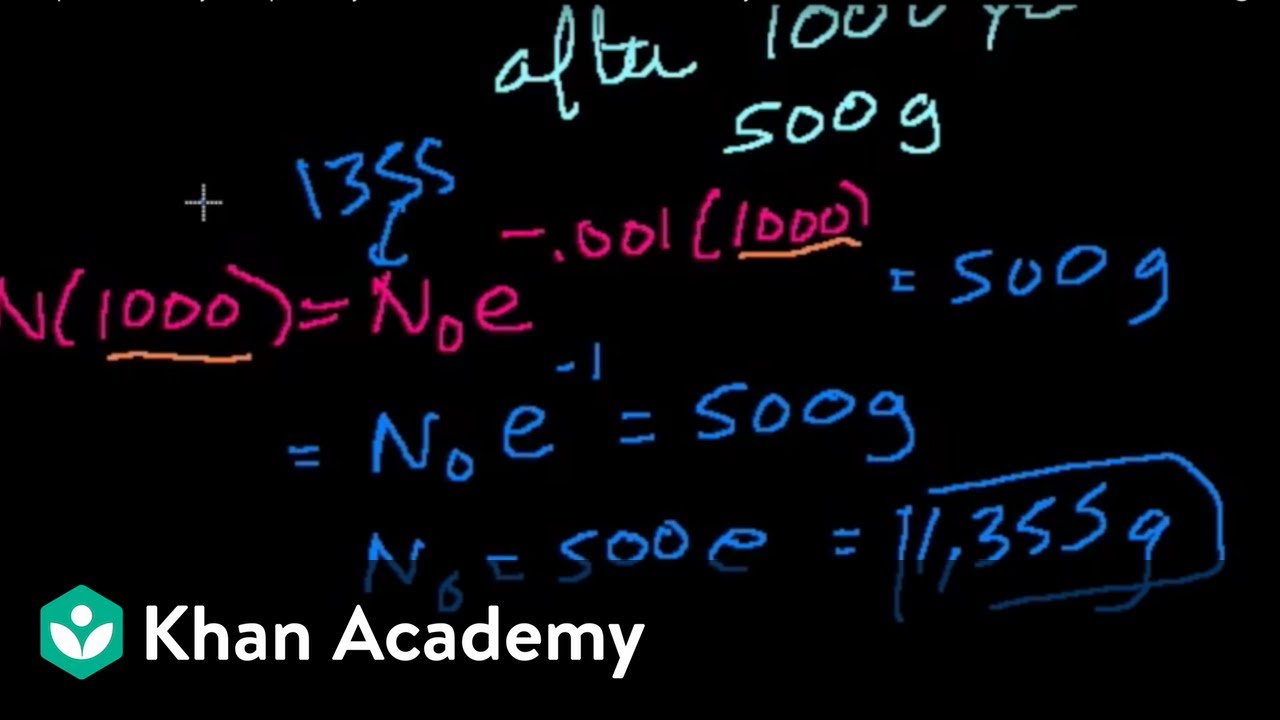 after 1000
500g
1355
N(1000) = N₀e^-.001(1000) = 500g
= N₀e^-1 = 500g
N₀ = 500e = 1,355g
Khan Academy